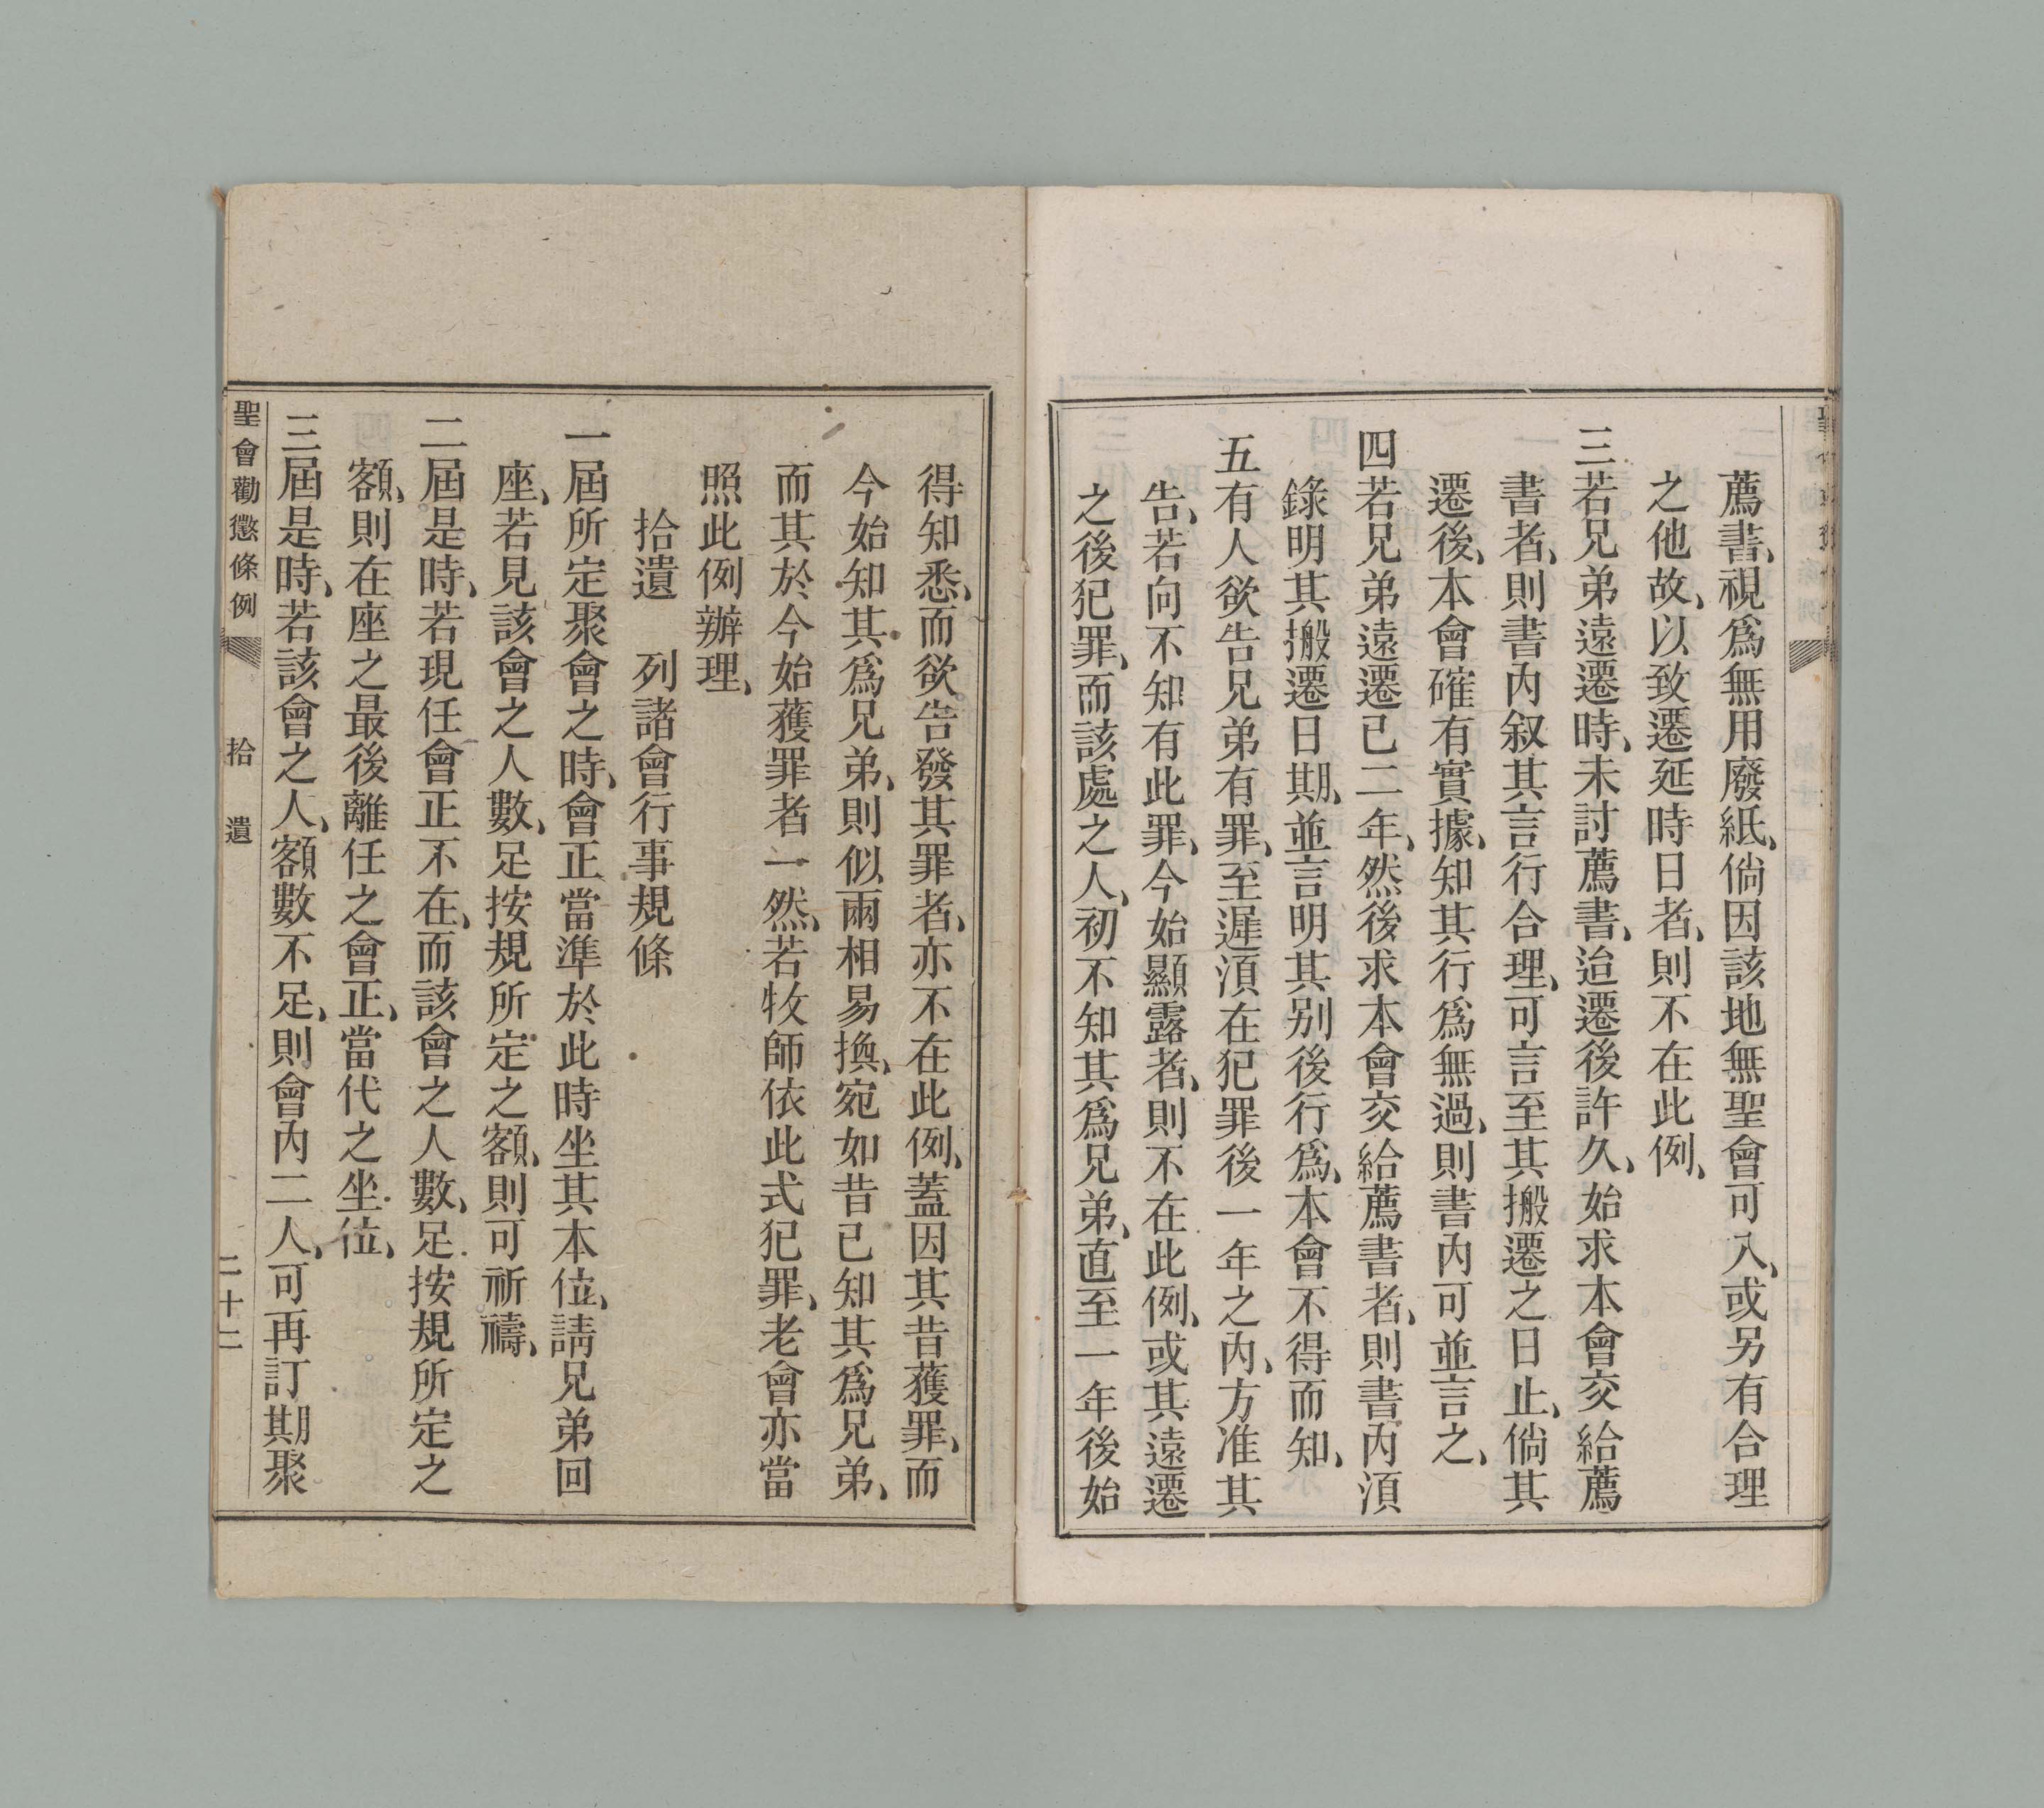 薦書、視爲無用廢紙、倘因該地無聖會可入、或另有合理
之他故、以致遷延時日者、則不在此例、
三若兄弟遠遷時、未討薦書、迨遷後許久、始求本會交給薦
書者、則書內叙其言行合理、可言至其搬遷之日止、倘其
遷後、本會確有實據、知其行爲無過、則書內可並言之、
四若兄弟遠遷已二年、然後求本會交給薦書者、則書内湏
錄明其搬遷日期、並言明其别後行爲、本會不得而知、
五有人欲告兄弟有罪、至遲湏在犯罪後一年之內、方准其
告、若向不知有此罪、今始顯露者、則不在此例、或其遠遷
之後犯罪、而該處之人、初不知其爲兄弟、直至一年後始
得知悉、而欲告發其罪者、亦不在此例、蓋因其昔獲罪、而
今始知其爲兄弟、則似兩相易換、宛如昔已知其爲兄弟、
而其於今始獲罪者一然、若牧師依此式犯罪、老會亦當
照此例辦理、
拾遺　列諸會行事規條
一屆所定聚會之時、會正當準於此時坐其本位、請兄弟回
座、若見該會之人數、足按規所定之額、則可祈禱、
二屆是時、若現任會正不在、而該會之人數、足按規所定之
額、則在座之最後離任之會正、當代之坐位、
三屆是時、若該會之人、額數不足、則會內二人、可再訂期聚
聖會勸懲條例　拾遺　二十二